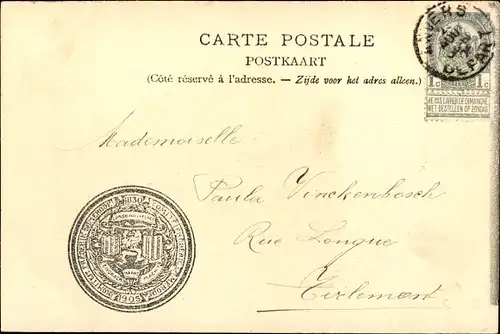 CARTE POSTALE
POSTKAART
(Côté réservé à l'adresse. — Zijde voor het adres alleen.)
DEPART
1c 1c
NE PAS LIVRER LE DIMANCHE
NIET BESTELLEN OP ZONDAG
Mademoiselle
Paula Vinckenbosch
Rue Longue
Tirlemont
1830
1905